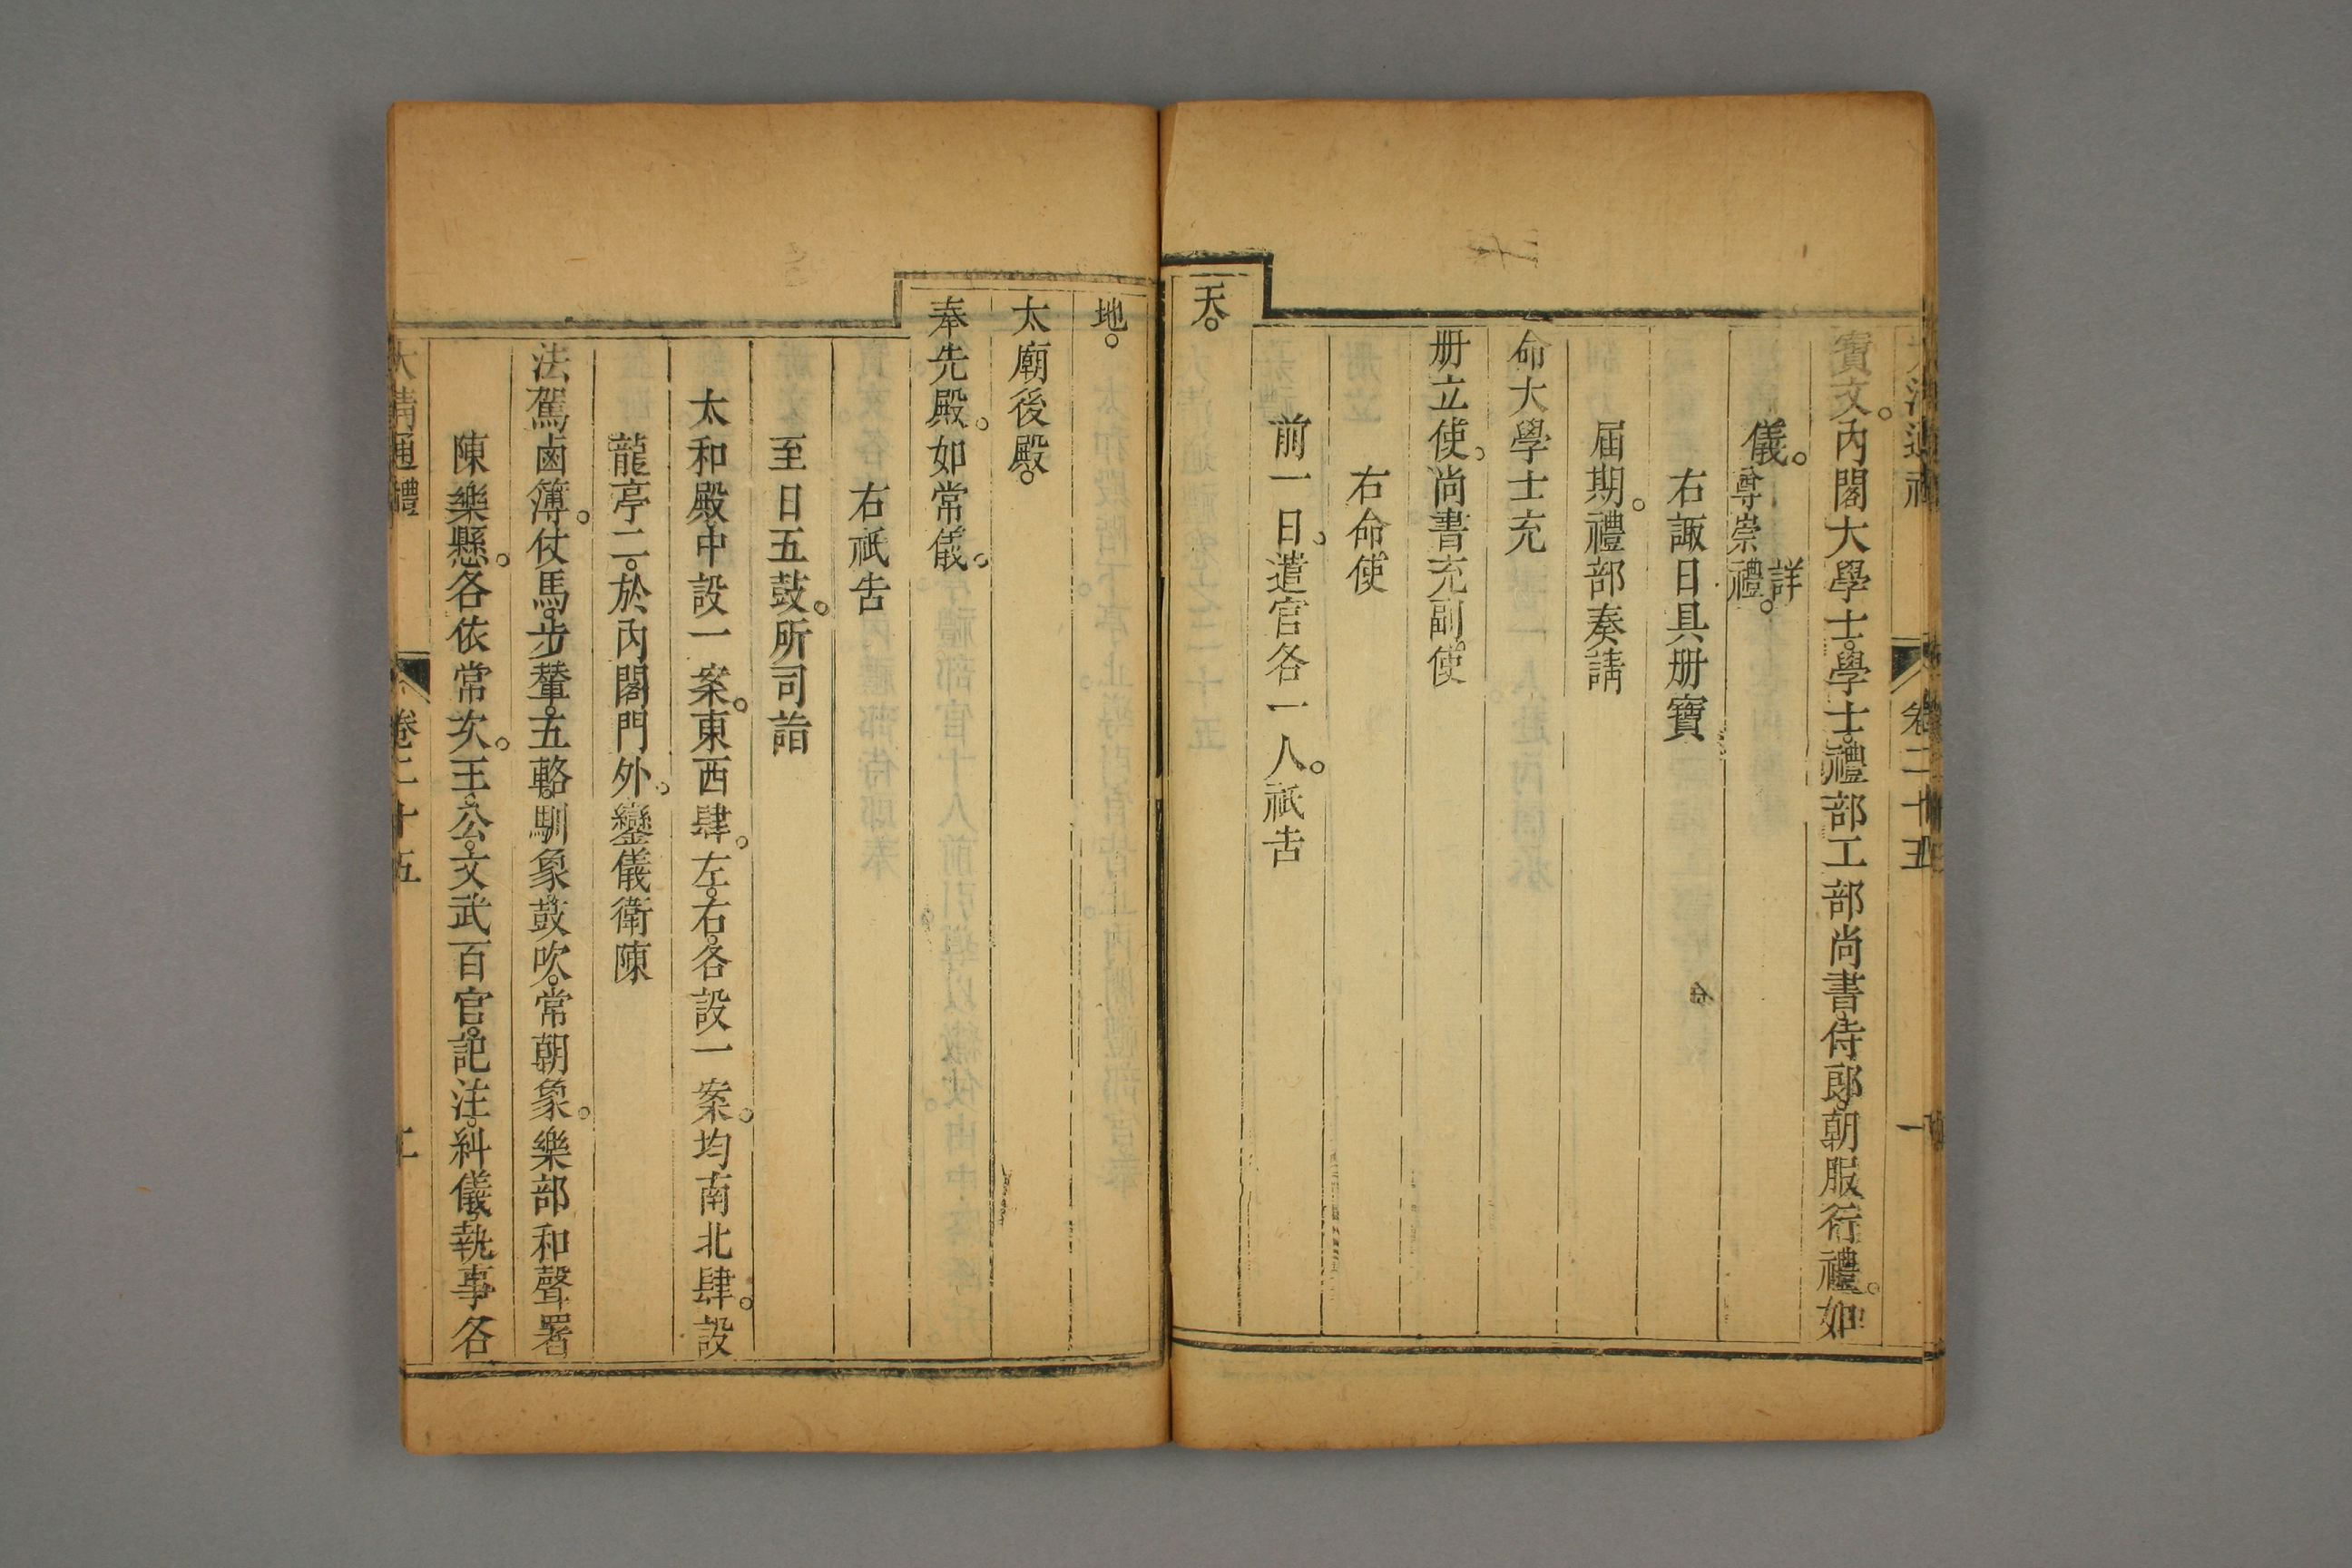 大清通禮 卷二十五 一
寶文。內閣大學士。學士。禮部工部尚書。侍郎。朝服行禮。如
儀。詳尊崇禮。
右諏日具册寶
屆期。禮部奏請
命大學士充
册立使。尚書充副。使
右命使
前一日。遣官各一人。祗吿
天。
地。
太廟後殿。
奉先殿。如常儀。
右祇吿
至日五鼓。所司詣
太和殿中設一案。東西肆。左。右。各設一案。均南北肆。設
龍亭二。於內閣門外。鑾儀衛陳
法駕鹵簿。仗馬。步輦。五輅。馴象。鼓吹。常朝象。樂部和聲署
陳樂懸。各依常次。王。公。文武百官。記注。糾儀。執事各
大清通禮 卷二十五 二